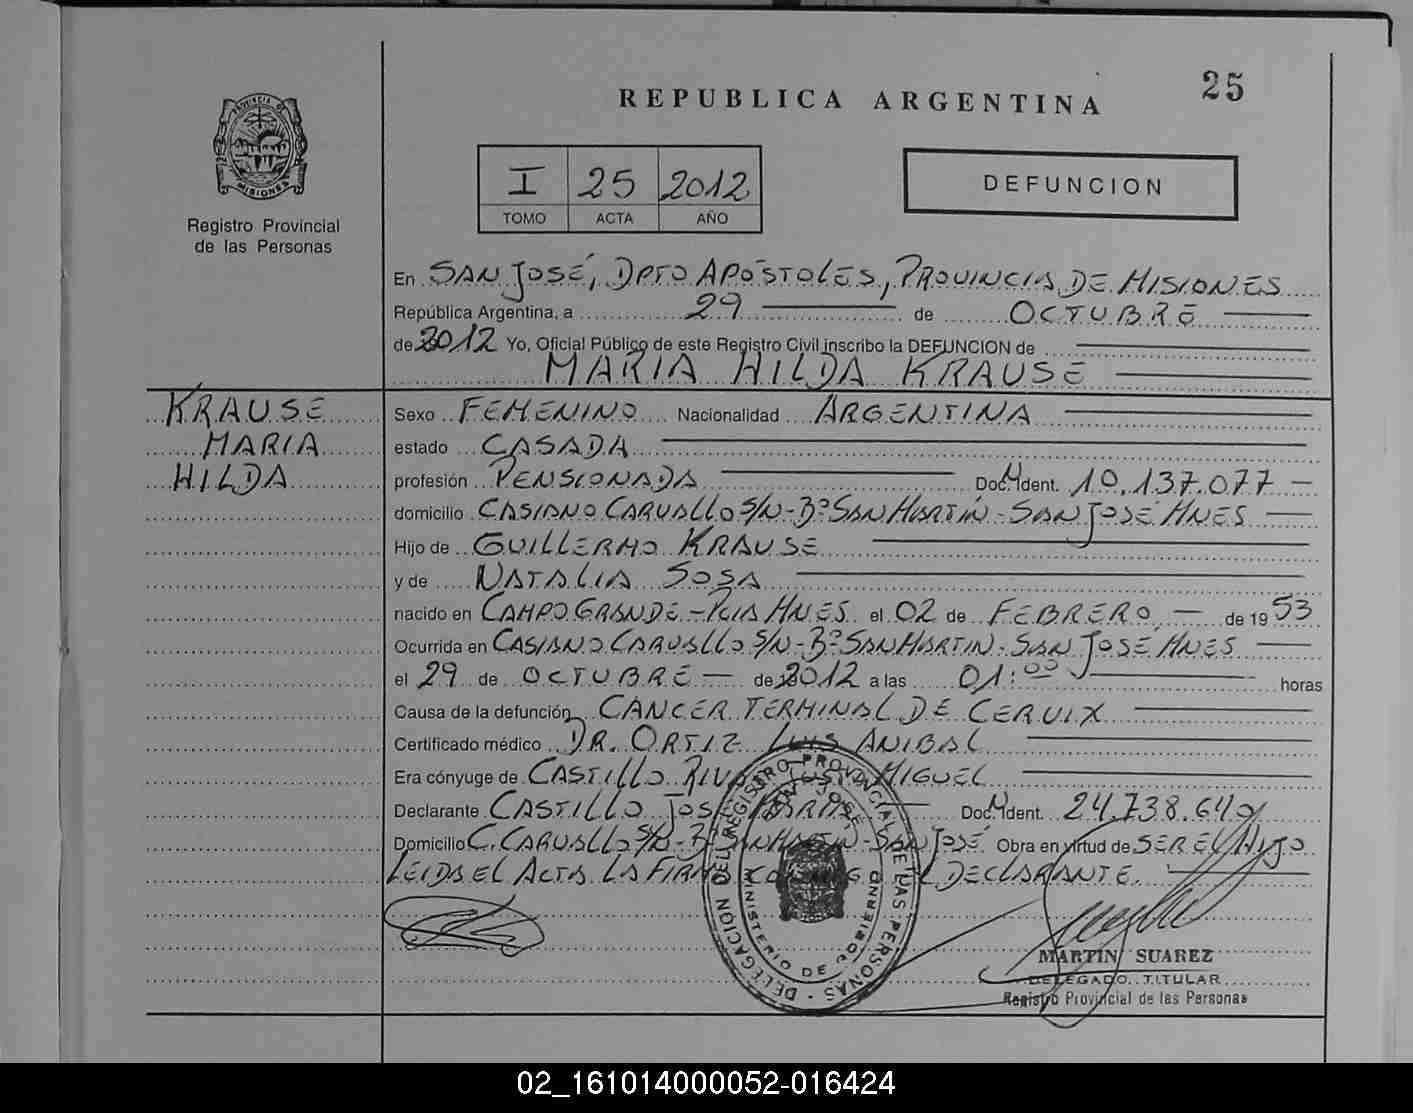 25
REPUBLICA ARGENTINA
PROVINCIA DE MISIONES
Registro Provincial
de las Personas
I 25 2012
TOMO ACTA AÑO
DEFUNCION
En SAN JOSÉ, DPTO APÓSTOLES, PROVINCIA DE MISIONES
República Argentina, a 29 de OCTUBRE
de 2012 Yo, Oficial Público de este Registro Civil inscribo la DEFUNCION de
MARIA HILDA KRAUSE
KRAUSE
MARIA
HILDA
Sexo FEMENINO Nacionalidad ARGENTINA
estado CASADA
profesión PENSIONADA Doc. Ident. 10.137.077
domicilio CASIANO CARVALLO S/N - Bº SAN MARTÍN - SAN JOSÉ MNES
Hijo de GUILLERMO KRAUSE
y de NATALIA SOSA
nacido en CAMPO GRANDE - PCIA MNES. el 02 de FEBRERO de 1953
Ocurrida en CASIANO CARVALLO S/N - Bº SAN MARTIN - SAN JOSÉ MNES
el 29 de OCTUBRE de 2012 a las 01:00 horas
Causa de la defunción CANCER TERMINAL DE CERVIX
Certificado médico DR. ORTIZ LUIS ANIBAL
Era cónyuge de CASTILLO MIGUEL
Declarante CASTILLO Doc. Ident. 24.738.640
Domicilio C. CARVALLO S/N - Bº SAN MARTIN - SAN JOSÉ. Obra en virtud de SER EL HIJO
LEIDA EL ACTA LA FIRMA EL DECLARANTE.
DELEGACIÓN DEL REGISTRO PROVINCIAL DE LAS PERSONAS
SAN JOSÉ
MINISTERIO DE GOBIERNO
MARTIN SUAREZ
DELEGADO TITULAR
Registro Provincial de las Personas
02_161014000052-016424